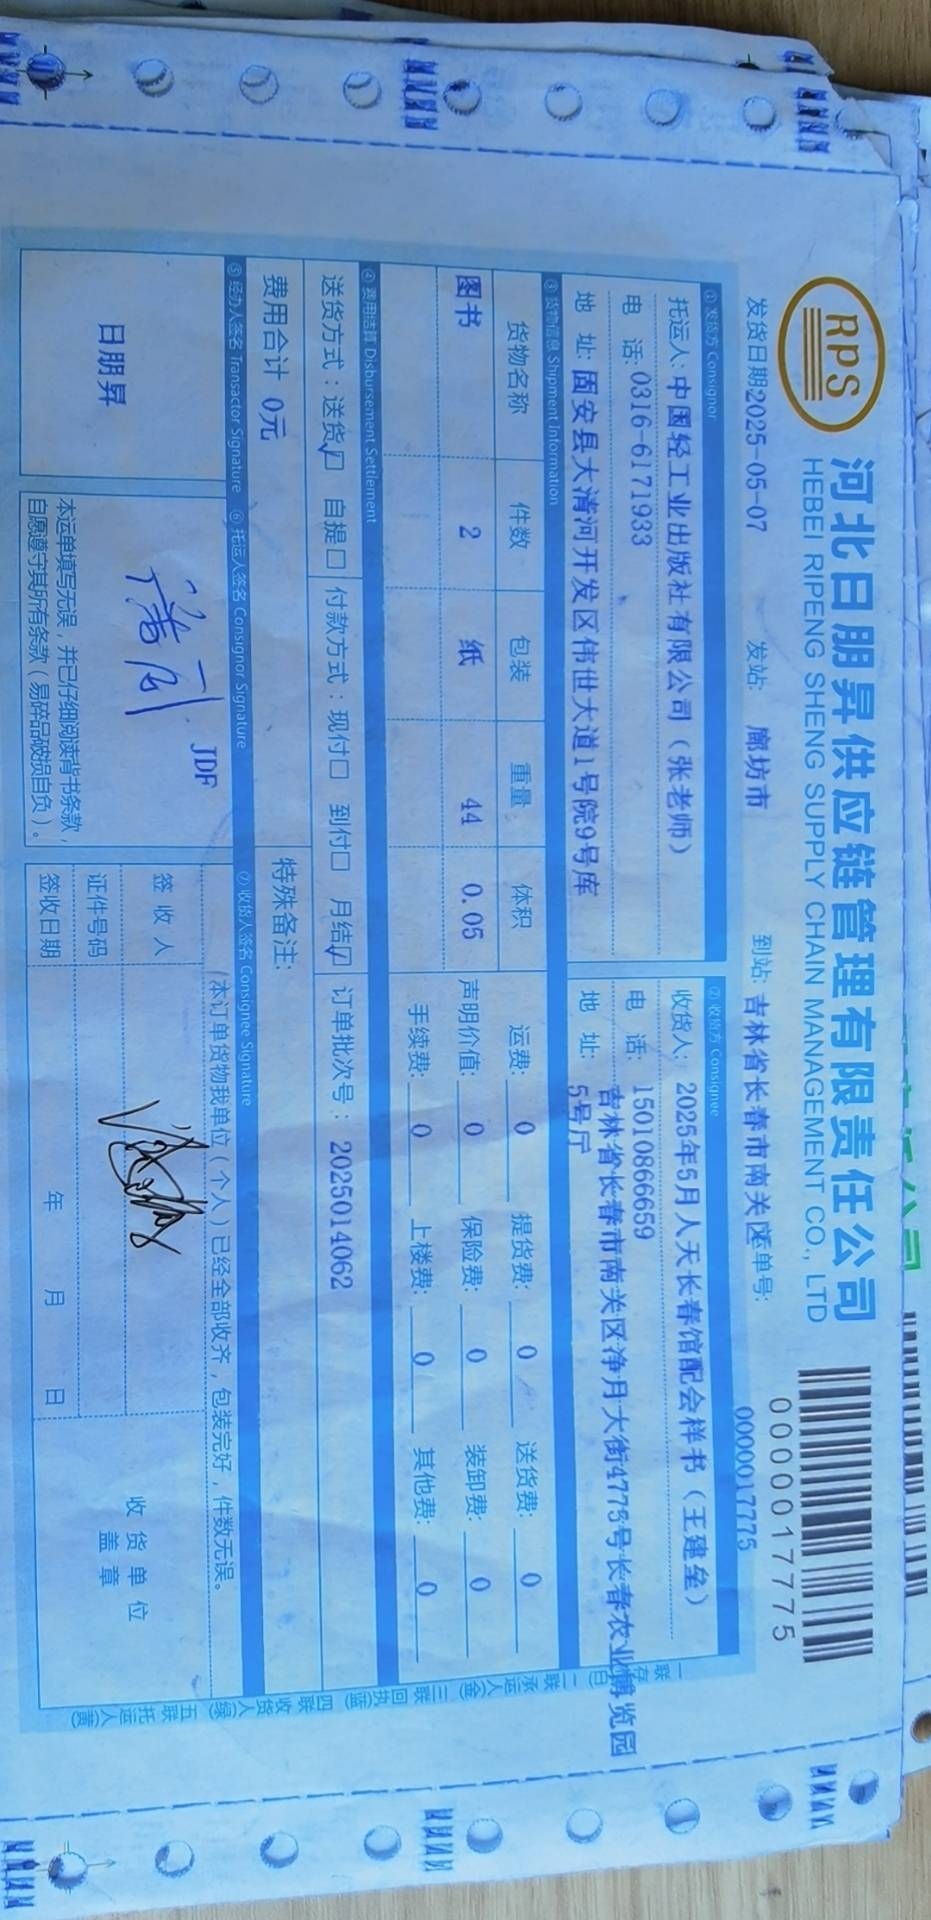 RPS
河北日朋昇供应链管理有限责任公司
HEBEI RIPENG SHENG SUPPLY CHAIN MANAGEMENT CO., LTD
0000017775
发货日期:2025-05-07 发站: 廊坊市 到站: 吉林省长春市南关区 单号: 0000017775
① 发货方 Consignor
托运人: 中国轻工业出版社有限公司（张老师）
电 话: 0316-6171933
地 址: 固安县大清河开发区伟世大道1号院9号库
② 收货方 Consignee
收货人: 2025年5月人天长春馆配会样书（王建垒）
电 话: 15010866659
地 址: 吉林省长春市南关区净月大街4775号长春农业博览园
5号厅
③ 货物信息 Shipment Information
货物名称 件数 包装 重量 体积
图书 2 纸 44 0.05
运费: 0 提货费: 0 送货费: 0
声明价值: 0 保险费: 0 装卸费: 0
手续费: 0 上楼费: 0 其他费: 0
④ 费用结算 Disbursement Settlement
送货方式：送货☑ 自提□ 付款方式：现付□ 到付□ 月结☑ 订单批次号： 2025014062
费用合计 0元 特殊备注:
⑤ 经办人签名 Transactor Signature
日朋昇
⑥ 托运人签名 Consignor Signature
JDF
本运单填写无误，并已仔细阅读背书条款，
自愿遵守其所有条款（易碎品破损自负）。
⑦ 收货人签名 Consignee Signature
本订单货物我单位（个人）已经全部收齐，包装完好，件数无误。
签 收 人
证件号码
签收日期 年 月 日
收 货 单 位
盖 章
一联 存 (白) 二联 承运人(金) 三联 回执(蓝) 四联 收货人(绿) 五联 托运人(黄)